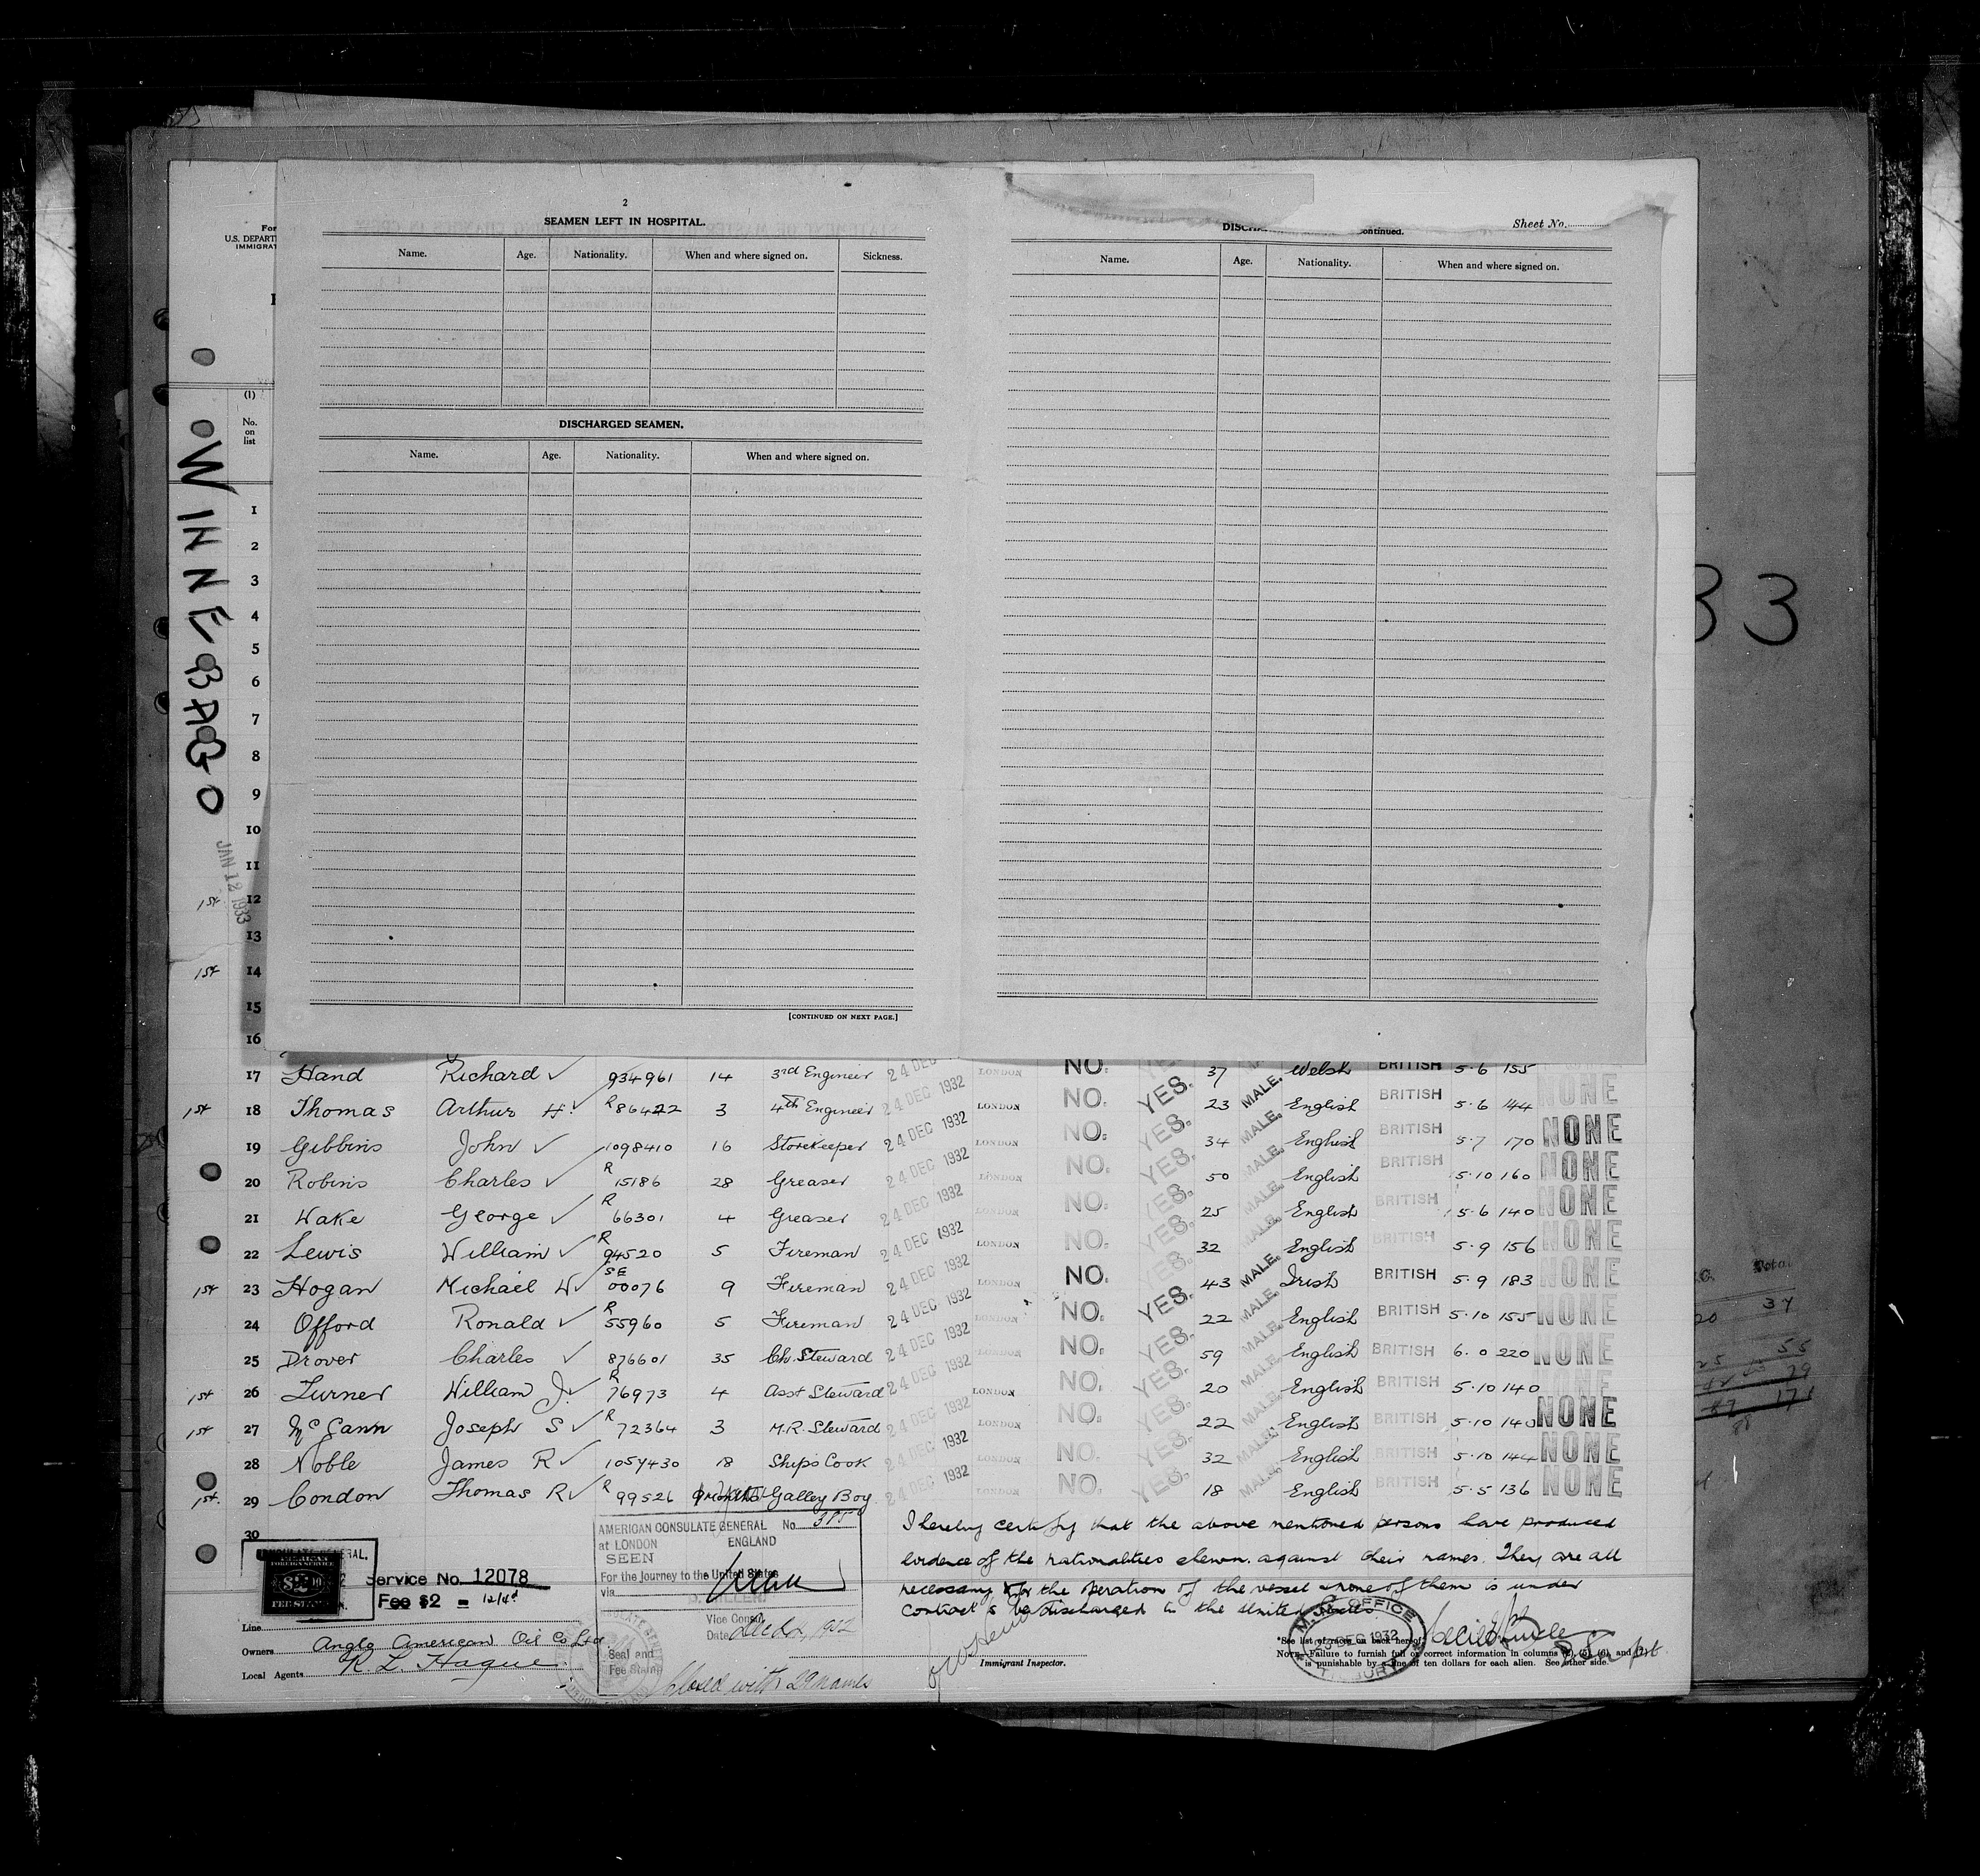 2
SEAMEN LEFT IN HOSPITAL.
Name. Age. Nationality. When and where signed on. Sickness.
DISCHARGED SEAMEN.
Name. Age. Nationality. When and where signed on.
[CONTINUED ON NEXT PAGE.]
Sheet No.
ontinued.
Name. Age. Nationality. When and where signed on.
For
U.S. DEPART
IMMIGRAT
(1)
No.
on
list
WINNEBAGO
JAN 12 1933
33
1
2
3
4
5
6
7
8
9
10
11
1st 12
13
1st 14
15
16
17 Hand Richard ✓ 934961 14 3rd Engineer 24 DEC LONDON NO. 37 Welsh BRITISH 5·6 155
1st 18 Thomas Arthur H. ✓ R 86422 3 4th Engineer 24 DEC 1932 LONDON NO. YES. 23 MALE. English BRITISH 5·6 144 NONE
19 Gibbins John ✓ 1098410 16 Storekeeper 24 DEC 1932 LONDON NO. YES. 34 MALE. English BRITISH 5·7 170 NONE
20 Robins Charles ✓ R 15186 28 Greaser 24 DEC 1932 LONDON NO. YES. 50 MALE. English BRITISH 5·10 160 NONE
21 Wake George ✓ R 66301 4 Greaser 24 DEC 1932 LONDON NO. YES. 25 MALE. English BRITISH 5·6 140 NONE
22 Lewis William ✓ R 94520 5 Fireman 24 DEC 1932 LONDON NO. YES. 32 MALE. English BRITISH 5·9 156 NONE
1st 23 Hogan Michael W ✓ SE 00076 9 Fireman 24 DEC 1932 LONDON NO. YES. 43 MALE. Irish BRITISH 5·9 183 NONE
24 Offord Ronald ✓ R 55960 5 Fireman 24 DEC 1932 LONDON NO. YES. 22 MALE. English BRITISH 5·10 155 NONE
25 Drover Charles ✓ 876601 35 Ch. Steward 24 DEC 1932 NO. YES. 59 MALE. English BRITISH 6·0 220 NONE
1st 26 Turner William J. ✓ R 76973 4 Asst Steward 24 DEC 1932 LONDON NO. YES. 20 MALE. English BRITISH 5·10 140 NONE
1st 27 McCann Joseph S ✓ R 72364 3 M.R. Steward 24 DEC 1932 LONDON NO. YES. 22 MALE. English BRITISH 5·10 140 NONE
28 Noble James R ✓ 1057430 18 Ships Cook 24 DEC 1932 LONDON NO. YES. 32 MALE. English BRITISH 5·10 144 NONE
1st. 29 Condon Thomas R ✓ R 99526 9 months Galley Boy 24 DEC 1932 LONDON NO. YES. 18 MALE. English BRITISH 5·5 136 NONE
30
I hereby certify that the above mentioned persons have produced
evidence of the nationalities shewn against their names. They are all
necessary for the operation of the vessel & none of them is under
contract to be discharged in the United States.
AMERICAN CONSULATE GENERAL No.
at LONDON ENGLAND
SEEN
For the journey to the United States
via
Vice Consul
Date
Seal and
Fee Stamp
Service No. 12078
Fee $2 = 12/4d
Line
Owners Anglo American Oil Co Ltd
Local Agents R. L. Hague
Closed with 29 names
Immigrant Inspector.
M.M. OFFICE
DEC 1932
TILBURY
*See list of races on back hereof.
NOTE.—Failure to furnish full or correct information in columns (2), (5), (6), and
is punishable by a fine of ten dollars for each alien. See other side.
Total
34
55
79
171